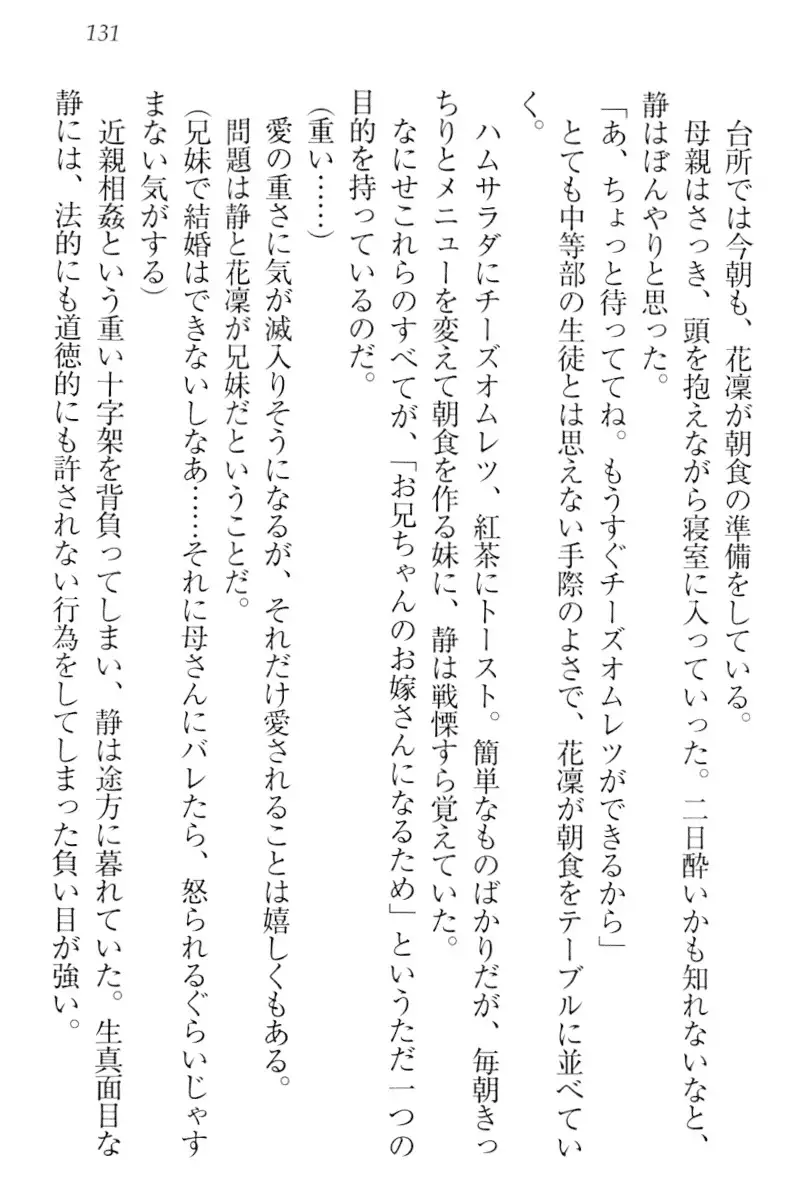 131
台所では今朝も、花凜が朝食の準備をしている。
母親はさっき、頭を抱えながら寝室に入っていった。二日酔いかも知れないなと、
静はぼんやりと思った。
「あ、ちょっと待っててね。もうすぐチーズオムレツができるから」
とても中等部の生徒とは思えない手際のよさで、花凜が朝食をテーブルに並べてい
く。
ハムサラダにチーズオムレツ、紅茶にトースト。簡単なものばかりだが、毎朝きっ
ちりとメニューを変えて朝食を作る妹に、静は戦慄すら覚えていた。
なにせこれらのすべてが、「お兄ちゃんのお嫁さんになるため」というただ一つの
目的を持っているのだ。
(重い……)
愛の重さに気が滅入りそうになるが、それだけ愛されることは嬉しくもある。
問題は静と花凜が兄妹だということだ。
(兄妹で結婚はできないしなあ……それに母さんにバレたら、怒られるぐらいじゃす
まない気がする)
近親相姦という重い十字架を背負ってしまい、静は途方に暮れていた。生真面目な
静には、法的にも道徳的にも許されない行為をしてしまった負い目が強い。